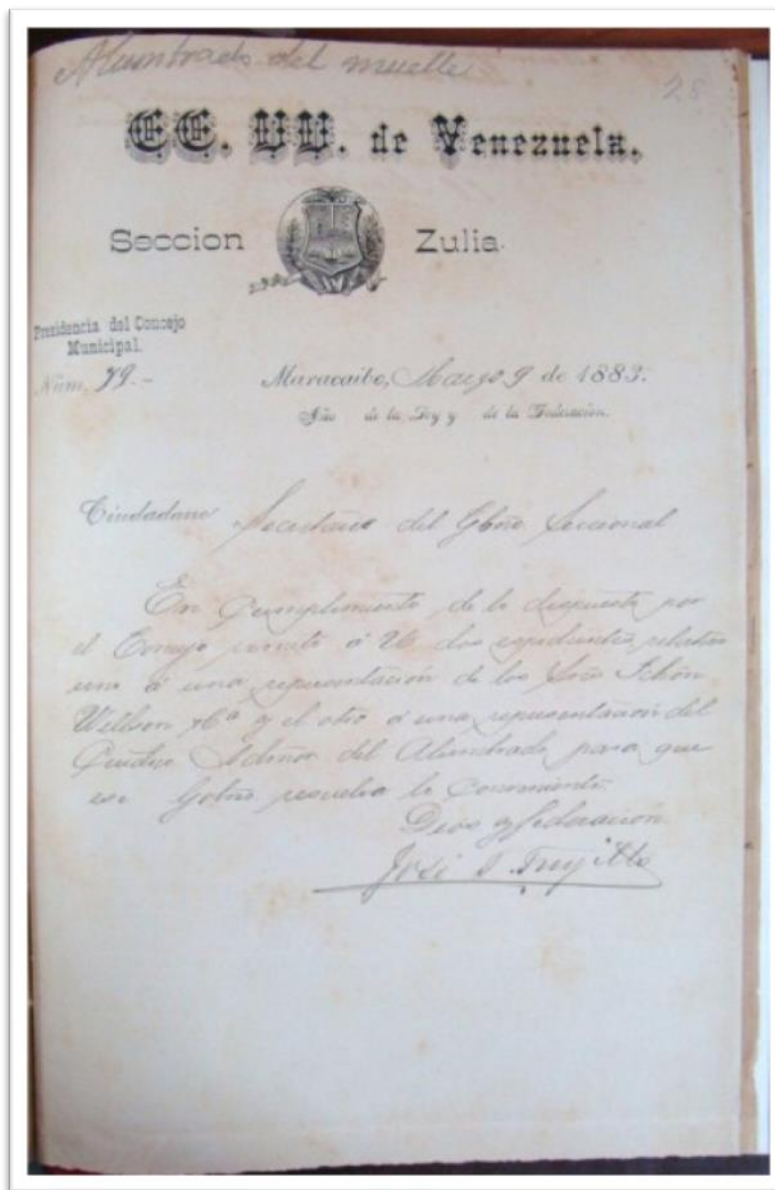 Alumbrado del muelle
25
EE. UU. de Venezuela.
Seccion Zulia.
Presidencia del Concejo
Municipal.
Núm. 79.-
Maracaibo, Marzo 9 de 1883.
Año de la Ley y de la Federacion.
Ciudadano Secretario del Gbno Seccional
En Cumplimiento de lo dispuesto por
el Concejo remito á U. dos expedientes relativo
uno á una representación de los Sres Schön
Willson &Cª y el otro á una representación del
Ciudno Admor del Alumbrado para que
ese Gobno resuelva lo Conveniente.
Dios y federación
José Trujillo